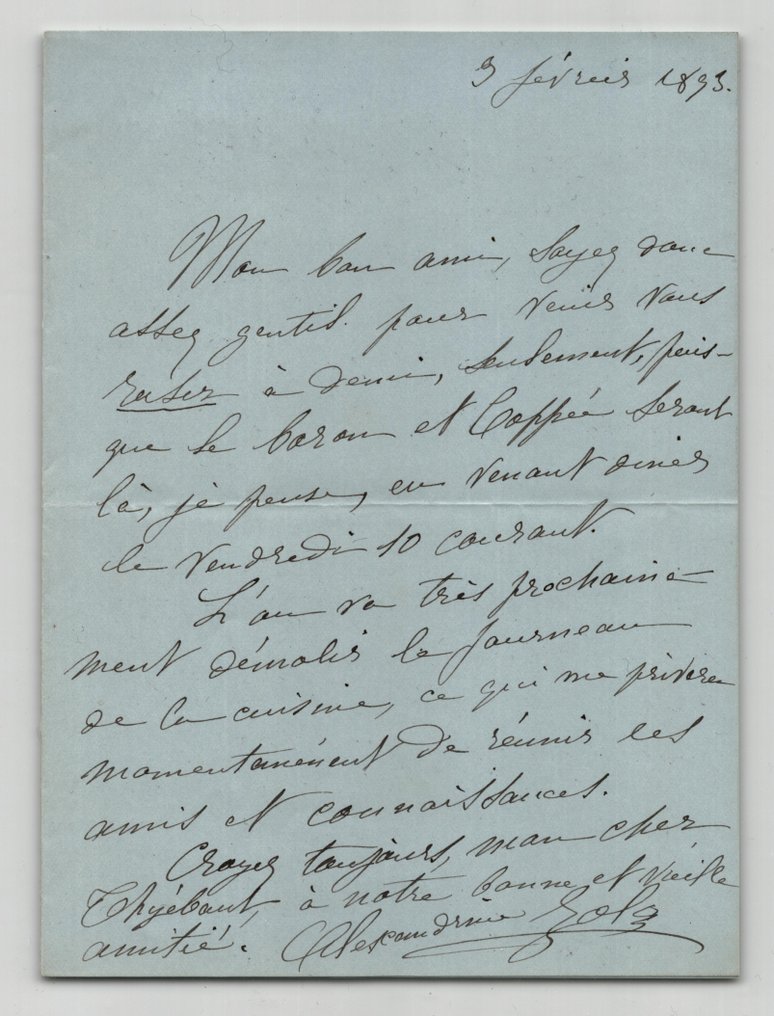 3 février 1893.
Mon bon ami, soyez donc
assez gentil pour venir vous
raser à demi, seulement, puis-
que le baron et Coppée seront
là, je pense, en venant diner
le vendredi 10 courant.
L'on va très prochaine-
ment démolir le fourneau
de la cuisine, ce qui me privera
momentanément de réunir les
amis et connaissances.
Croyez toujours, mon cher
Thyébaut, à notre bonne et vieille
amitié. Alexandrine Zola